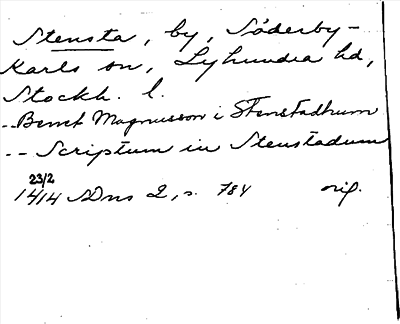 Stensta, by, Söderby-
Karls sn, Lyhundra hd,
Stockh. l.
--Benct Magnusson i Stenstadhum
-- Scriptum in Stenstadum
23/2
1414 SDns 2, s. 784 orig.